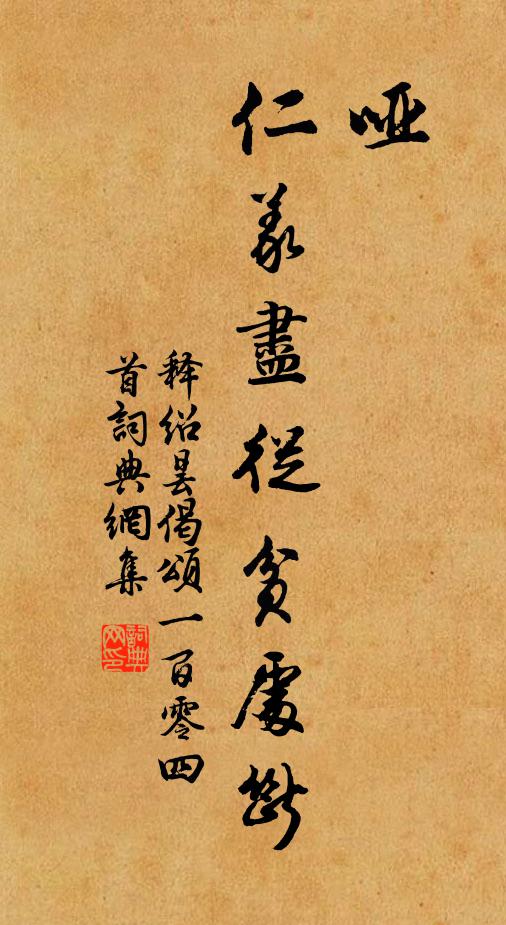 哑
仁義盡從貧處斷
释紹昙偈頌一百零四
首詞典網集
詞典
网印